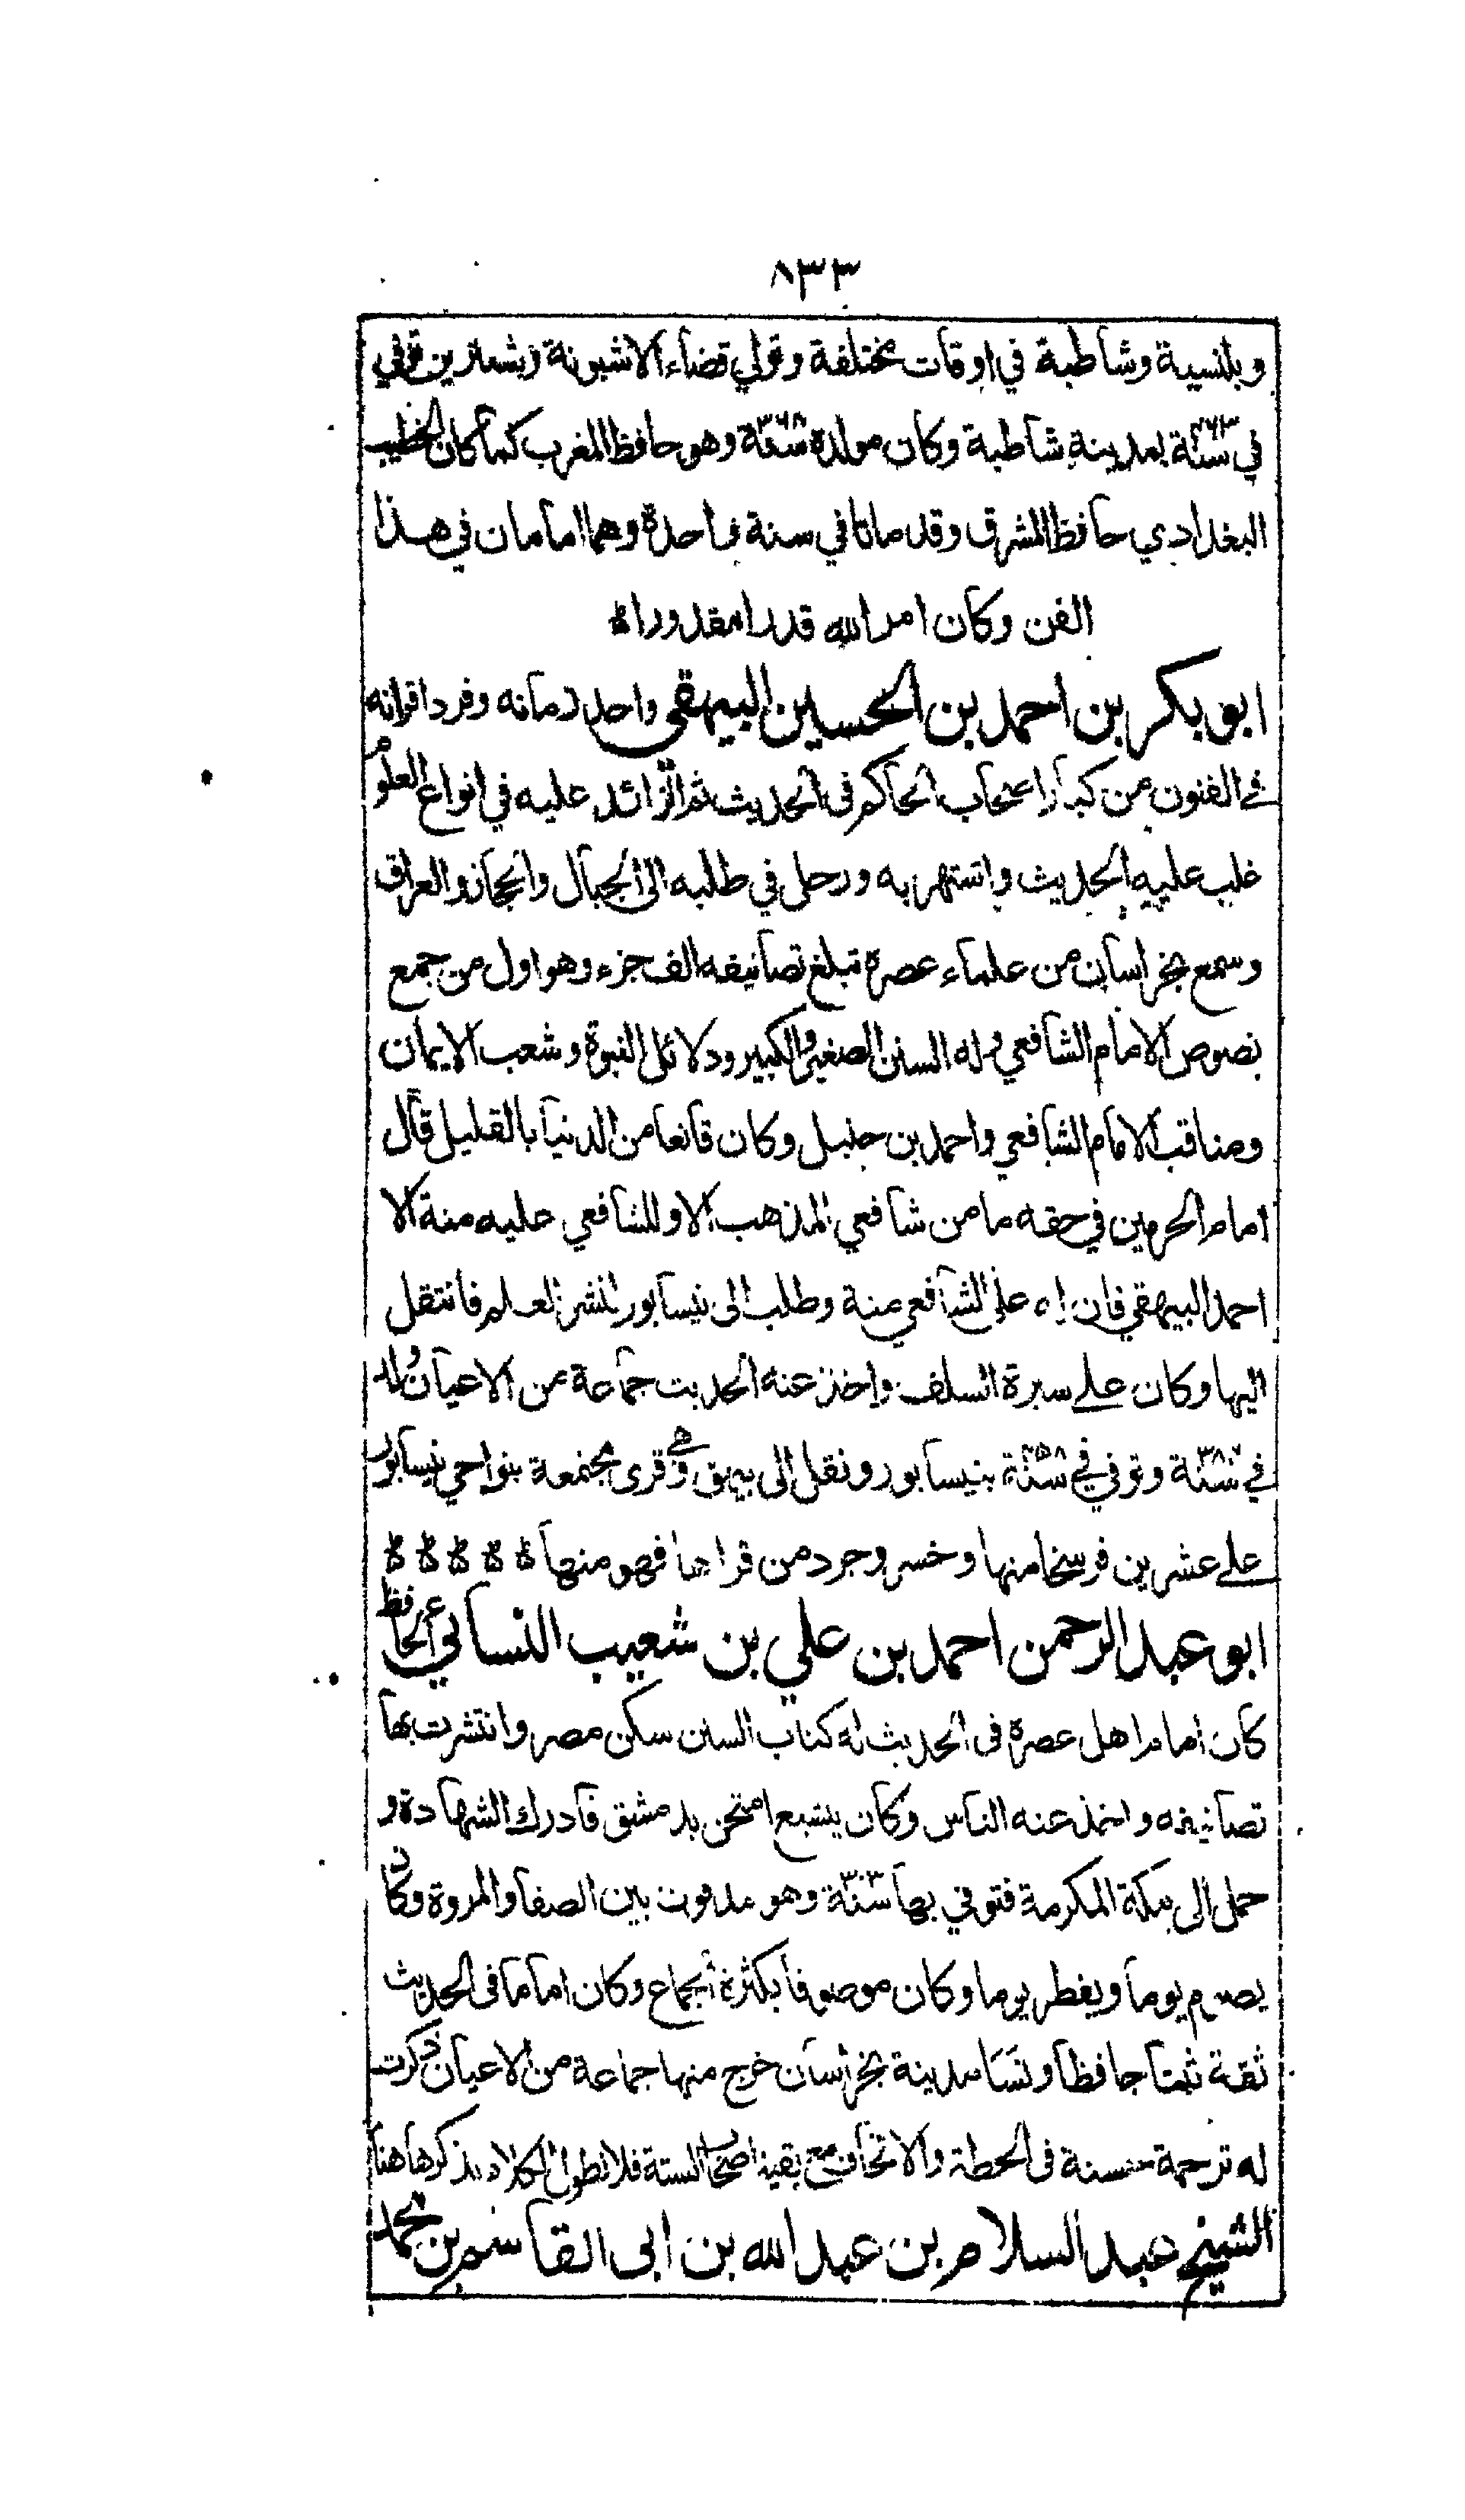 ٨٣٣
وبلنسية وشاطبة في اوقات مختلفة وتولي قضاء الاشبونة وشنترين توفي
في سنة ٤٦٣ بمدينة شاطبة وكان مولده سنة ٣٦٨ وهو حافظ المغرب كما كان الخطيب
البغدادي حافظ المشرق وقد ماتا في سنة واحدة وهما امامان في هذا
الفن وكان امر الله قدرا مقدورا ه
ابو بكر بن احمد بن الحسين البيهقي واحد زمانه وفرد اقرانه
في الفنون من كبار اصحاب الحاكم فى الحديث ثم الزائد عليه في انواع العلوم
غلب عليه الحديث واشتهر به ورحل في طلبه الى الجبال والحجاز والعراق
وسمع بخراسان من علماء عصره تبلغ تصانيفه الف جزء وهو اول من جمع
نصوص الامام الشافعي وله السنن الصغير والكبير ودلائل النبوة وشعب الايمان
ومناقب الامام الشافعي واحمد بن حنبل وكان قانعا من الدنيا بالقليل قال
امام الحرمين في حقه ما من شافعي المذهب الا وللشافعي عليه منة الا
احمد البيهقي فان له على الشافعي منة وطلب الى نيسابور لنشر العلم فانتقل
اليها وكان علے سيرة السلف واخذ عنه الحديث جماعة من الاعيان ولد
في سنة ٣٨٤ وتوفي في سنة ٤٥٨ بنيسابور ونقل الى بيهق وهي قرى مجتمعة بنواحي نيسابور
علے عشرين فرسخا منها وخسروجرد من قراها فهو منها ه ه ه ه ه
ابو عبد الرحمن احمد بن علي بن شعيب النسائي الحافظ
كان امام اهل عصره فى الحديث له كتاب السنن سكن مصر وانتشرت بها
تصانيفه واخذ عنه الناس وكان يتشيع امتحن بدمشق فادرك الشهادة و
حمل الى مكة المكرمة فتوفي بها سنة ٣٠٣ وهو مدفون بين الصفا والمروة وكان
يصوم يوما ويفطر يوما وكان موصوفا بكثرة الجماع وكان اماما فى الحديث
ثقة ثبتا حافظا ونَسَا مدينة بخراسان خرج منها جماعة من الاعيان ذكرت
له ترجمة حسنة فى الحطة والاتحاف مع بقية اصحاب الستة فلا نطول الكلام بذكرها هنا
الشيخ عبد السلام بن عبد الله بن ابى القاسم بن محمد